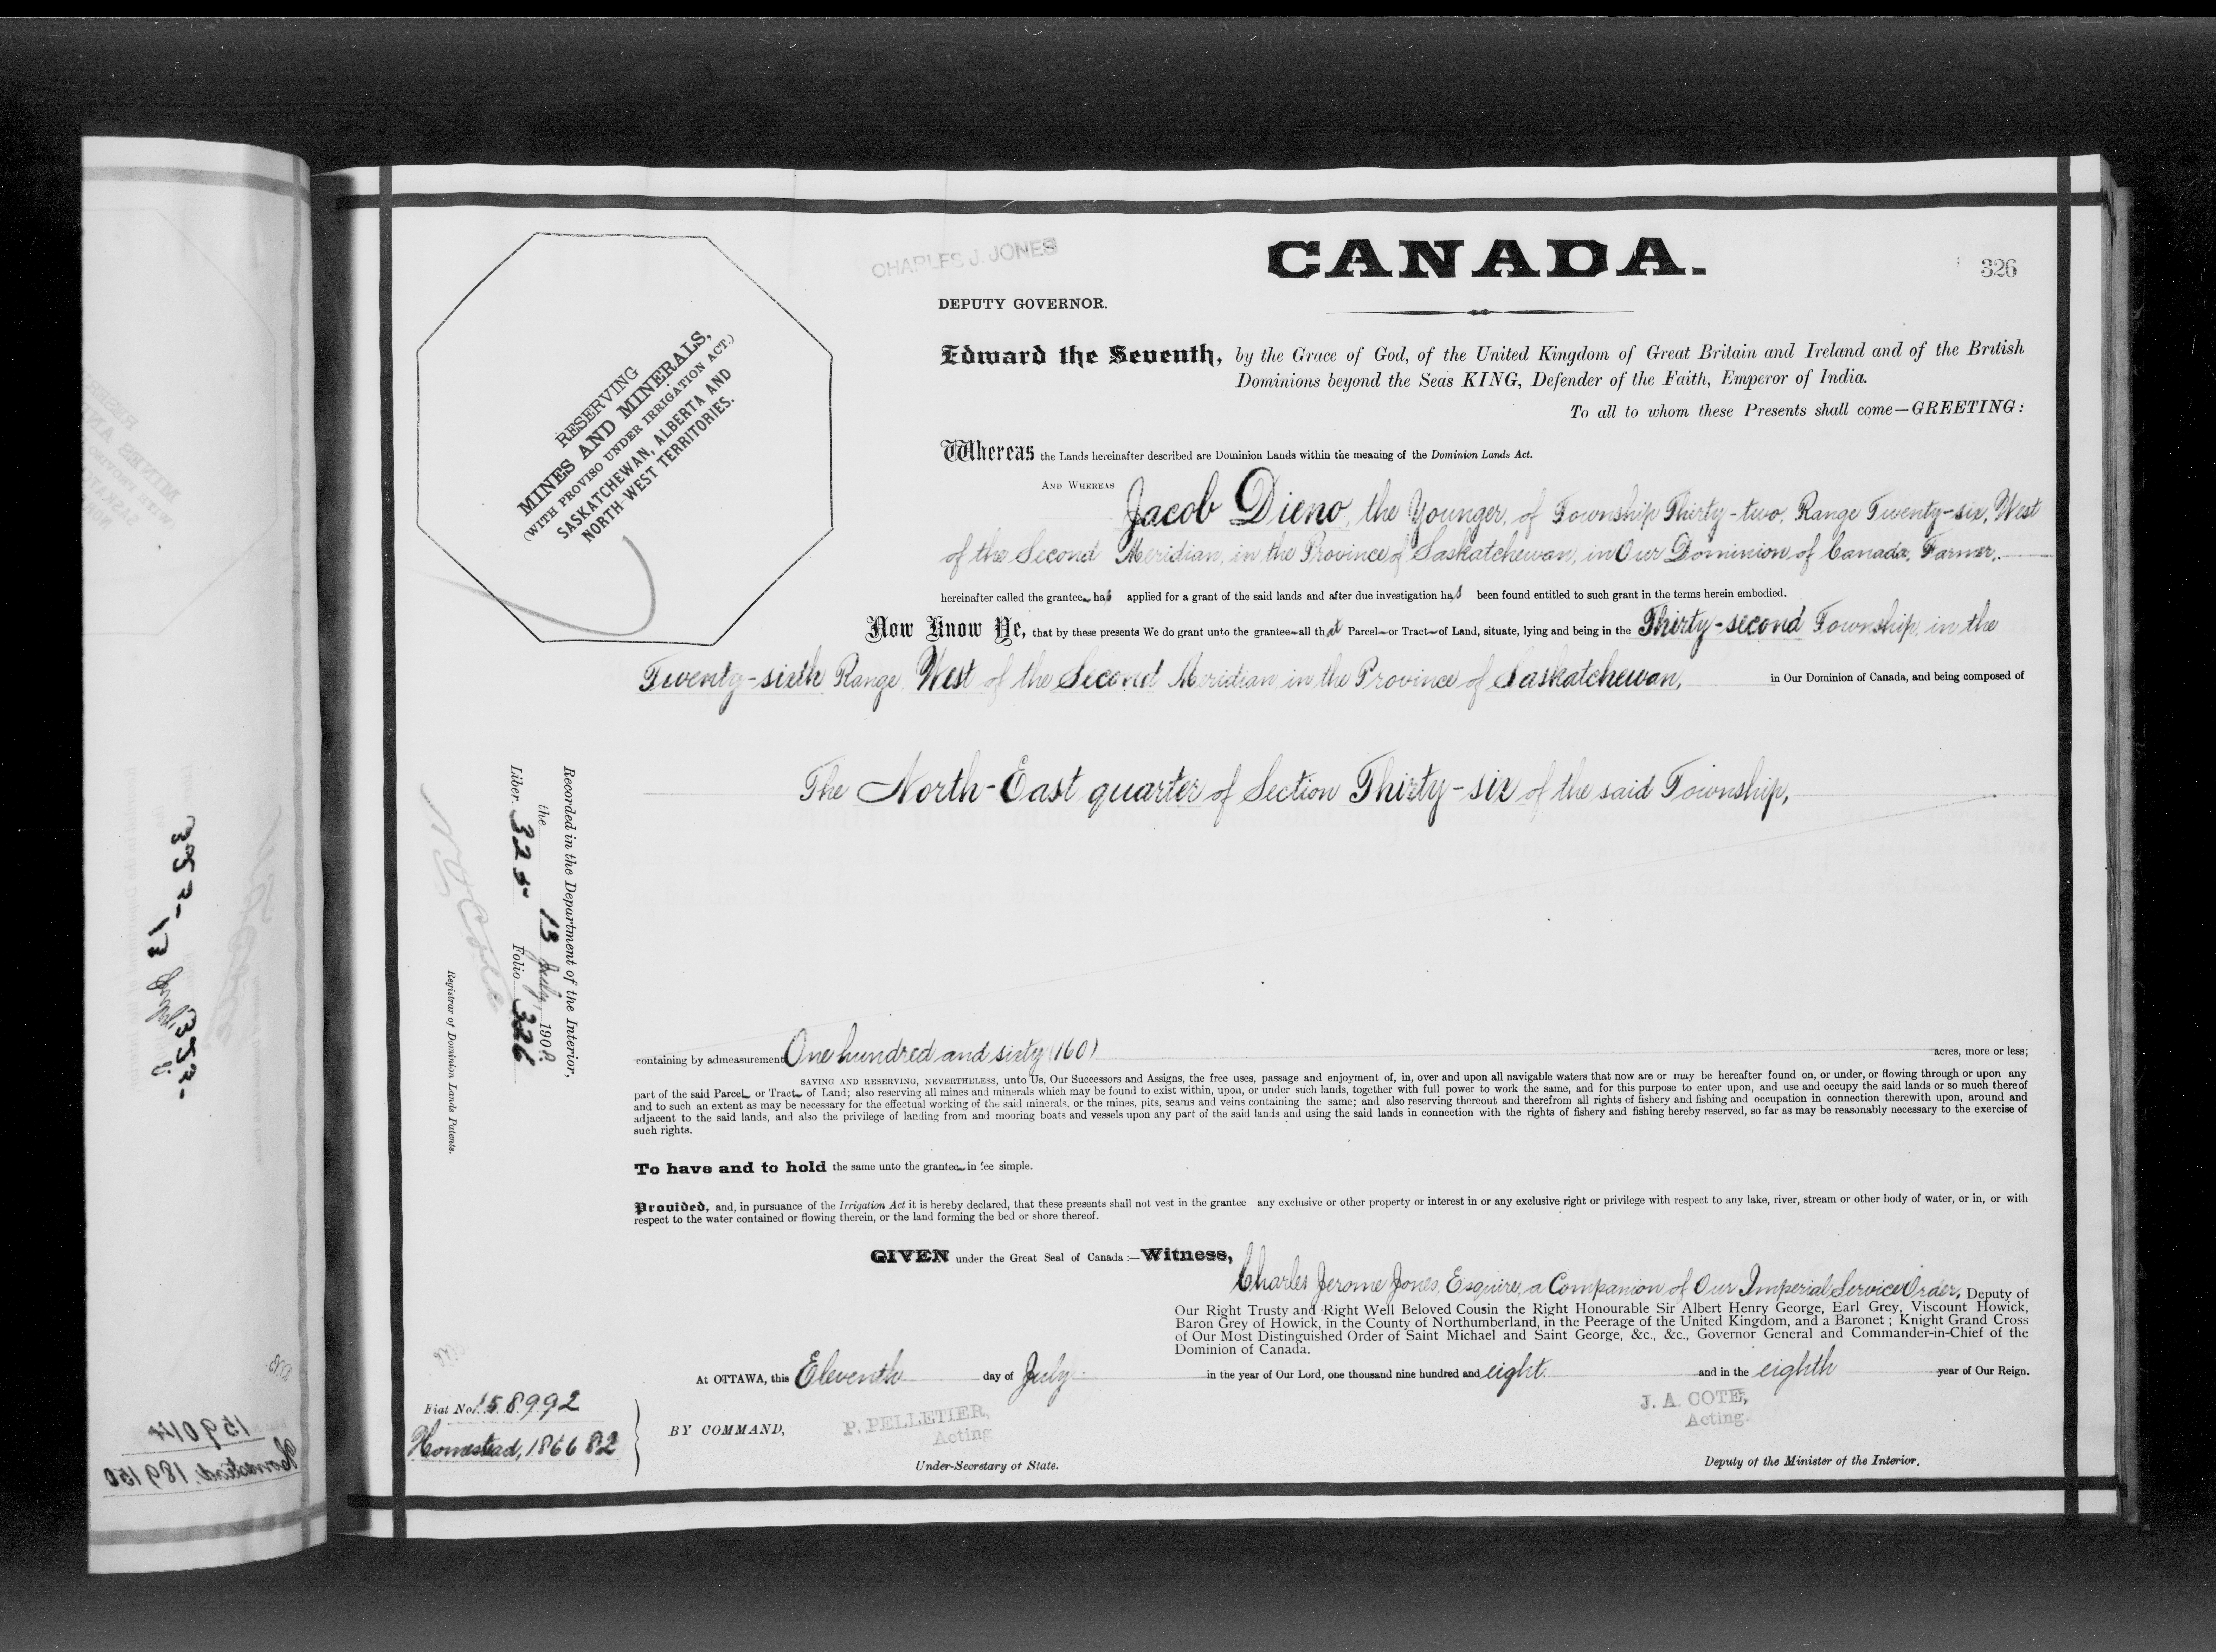 CHARLES J. JONES
CANADA.
326
DEPUTY GOVERNOR.
RESERVING
MINES AND MINERALS,
(WITH PROVISO UNDER IRRIGATION ACT.)
SASKATCHEWAN, ALBERTA AND
NORTH-WEST TERRITORIES.
Edward the Seventh, by the Grace of God, of the United Kingdom of Great Britain and Ireland and of the British
Dominions beyond the Seas KING, Defender of the Faith, Emperor of India.
To all to whom these Presents shall come—GREETING:
Whereas the Lands hereinafter described are Dominion Lands within the meaning of the Dominion Lands Act.
AND WHEREAS Jacob Dieno, the Younger, of Township Thirty-two, Range Twenty-six, West
of the Second Meridian, in the Province of Saskatchewan, in Our Dominion of Canada, Farmer,
hereinafter called the grantee has applied for a grant of the said lands and after due investigation has been found entitled to such grant in the terms herein embodied.
Now Know Ye, that by these presents We do grant unto the grantee all that Parcel or Tract of Land, situate, lying and being in the Thirty-second Township, in the
Twenty-sixth Range West of the Second Meridian in the Province of Saskatchewan, in Our Dominion of Canada, and being composed of
The North-East quarter of Section Thirty-six of the said Township,
Recorded in the Department of the Interior,
the 13 July 1908.
Liber 325 Folio 326
Registrar of Dominion Lands Patents.
containing by admeasurement One hundred and sixty (160) acres, more or less;
SAVING AND RESERVING, NEVERTHELESS, unto Us, Our Successors and Assigns, the free uses, passage and enjoyment of, in, over and upon all navigable waters that now are or may be hereafter found on, or under, or flowing through or upon any
part of the said Parcel or Tract of Land; also reserving all mines and minerals which may be found to exist within, upon, or under such lands, together with full power to work the same, and for this purpose to enter upon, and use and occupy the said lands or so much thereof
and to such an extent as may be necessary for the effectual working of the said minerals, or the mines, pits, seams and veins containing the same; and also reserving thereout and therefrom all rights of fishery and fishing and occupation in connection therewith upon, around and
adjacent to the said lands, and also the privilege of landing from and mooring boats and vessels upon any part of the said lands and using the said lands in connection with the rights of fishery and fishing hereby reserved, so far as may be reasonably necessary to the exercise of
such rights.
To have and to hold the same unto the grantee in fee simple.
Provided, and, in pursuance of the Irrigation Act it is hereby declared, that these presents shall not vest in the grantee any exclusive or other property or interest in or any exclusive right or privilege with respect to any lake, river, stream or other body of water, or in, or with
respect to the water contained or flowing therein, or the land forming the bed or shore thereof.
GIVEN under the Great Seal of Canada:—Witness,
Charles Jerome Jones, Esquire, a Companion of Our Imperial Service Order, Deputy of
Our Right Trusty and Right Well Beloved Cousin the Right Honourable Sir Albert Henry George, Earl Grey, Viscount Howick,
Baron Grey of Howick, in the County of Northumberland, in the Peerage of the United Kingdom, and a Baronet; Knight Grand Cross
of Our Most Distinguished Order of Saint Michael and Saint George, &c., &c., Governor General and Commander-in-Chief of the
Dominion of Canada.
At OTTAWA, this Eleventh day of July in the year of Our Lord, one thousand nine hundred and eight and in the eighth year of Our Reign.
Fiat No. 158992
Homestead, 186682
BY COMMAND,
P. PELLETIER,
Acting
Under-Secretary of State.
J. A. COTE,
Acting.
Deputy of the Minister of the Interior.
159014
Homestead. 189150